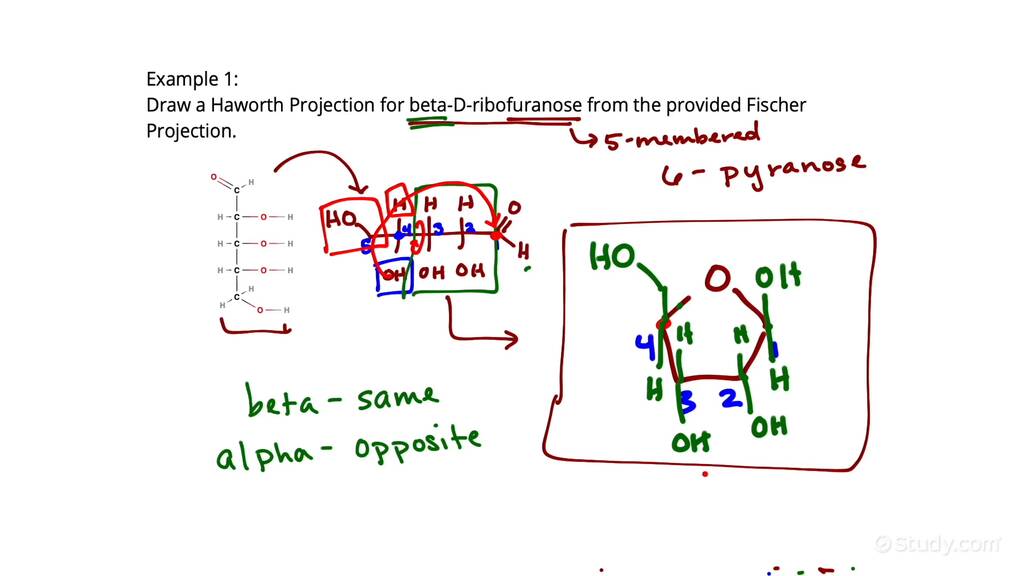 Example 1:
Draw a Haworth Projection for beta-D-ribofuranose from the provided Fischer
Projection.
5-membered
6 - pyranose
O H
C
H C O H
H C O H
H C O H
H C H
O H
H H H O
HO
5 4 3 2 1
H
OH OH OH
HO O OH
H H
4 1
H 3 2 H
OH OH
beta - same
alpha - opposite
Study.com